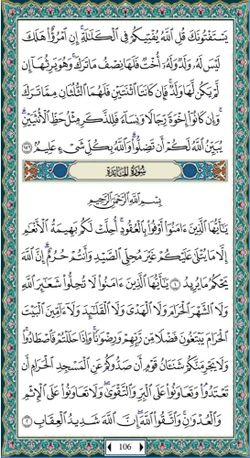 يَسْتَفْتُونَكَ قُلِ ٱللَّهُ يُفْتِيكُمْ فِى ٱلْكَلَـٰلَةِ ۚ إِنِ ٱمْرُؤٌا۟ هَلَكَ
لَيْسَ لَهُۥ وَلَدٌ وَلَهُۥٓ أُخْتٌ فَلَهَا نِصْفُ مَا تَرَكَ ۚ وَهُوَ يَرِثُهَآ إِن
لَّمْ يَكُن لَّهَا وَلَدٌ ۚ فَإِن كَانَتَا ٱثْنَتَيْنِ فَلَهُمَا ٱلثُّلُثَانِ مِمَّا تَرَكَ
ۚ وَإِن كَانُوٓا۟ إِخْوَةً رِّجَالًا وَنِسَآءً فَلِلذَّكَرِ مِثْلُ حَظِّ ٱلْأُنثَيَيْنِ ۗ
يُبَيِّنُ ٱللَّهُ لَكُمْ أَن تَضِلُّوا۟ ۗ وَٱللَّهُ بِكُلِّ شَىْءٍ عَلِيمٌۢ ١٧٦
سُورَةُ المَائِدَةِ
بِسْمِ ٱللَّهِ ٱلرَّحْمَـٰنِ ٱلرَّحِيمِ
يَـٰٓأَيُّهَا ٱلَّذِينَ ءَامَنُوٓا۟ أَوْفُوا۟ بِٱلْعُقُودِ ۚ أُحِلَّتْ لَكُم بَهِيمَةُ ٱلْأَنْعَـٰمِ
إِلَّا مَا يُتْلَىٰ عَلَيْكُمْ غَيْرَ مُحِلِّى ٱلصَّيْدِ وَأَنتُمْ حُرُمٌ ۗ إِنَّ ٱللَّهَ
يَحْكُمُ مَا يُرِيدُ ١ يَـٰٓأَيُّهَا ٱلَّذِينَ ءَامَنُوا۟ لَا تُحِلُّوا۟ شَعَـٰٓئِرَ ٱللَّهِ
وَلَا ٱلشَّهْرَ ٱلْحَرَامَ وَلَا ٱلْهَدْىَ وَلَا ٱلْقَلَـٰٓئِدَ وَلَآ ءَآمِّينَ ٱلْبَيْتَ
ٱلْحَرَامَ يَبْتَغُونَ فَضْلًا مِّن رَّبِّهِمْ وَرِضْوَٰنًا ۚ وَإِذَا حَلَلْتُمْ فَٱصْطَادُوا۟ ۚ
وَلَا يَجْرِمَنَّكُمْ شَنَـَٔانُ قَوْمٍ أَن صَدُّوكُمْ عَنِ ٱلْمَسْجِدِ ٱلْحَرَامِ أَن
تَعْتَدُوا۟ ۘ وَتَعَاوَنُوا۟ عَلَى ٱلْبِرِّ وَٱلتَّقْوَىٰ ۖ وَلَا تَعَاوَنُوا۟ عَلَى ٱلْإِثْمِ
وَٱلْعُدْوَٰنِ ۚ وَٱتَّقُوا۟ ٱللَّهَ ۖ إِنَّ ٱللَّهَ شَدِيدُ ٱلْعِقَابِ ٢
106